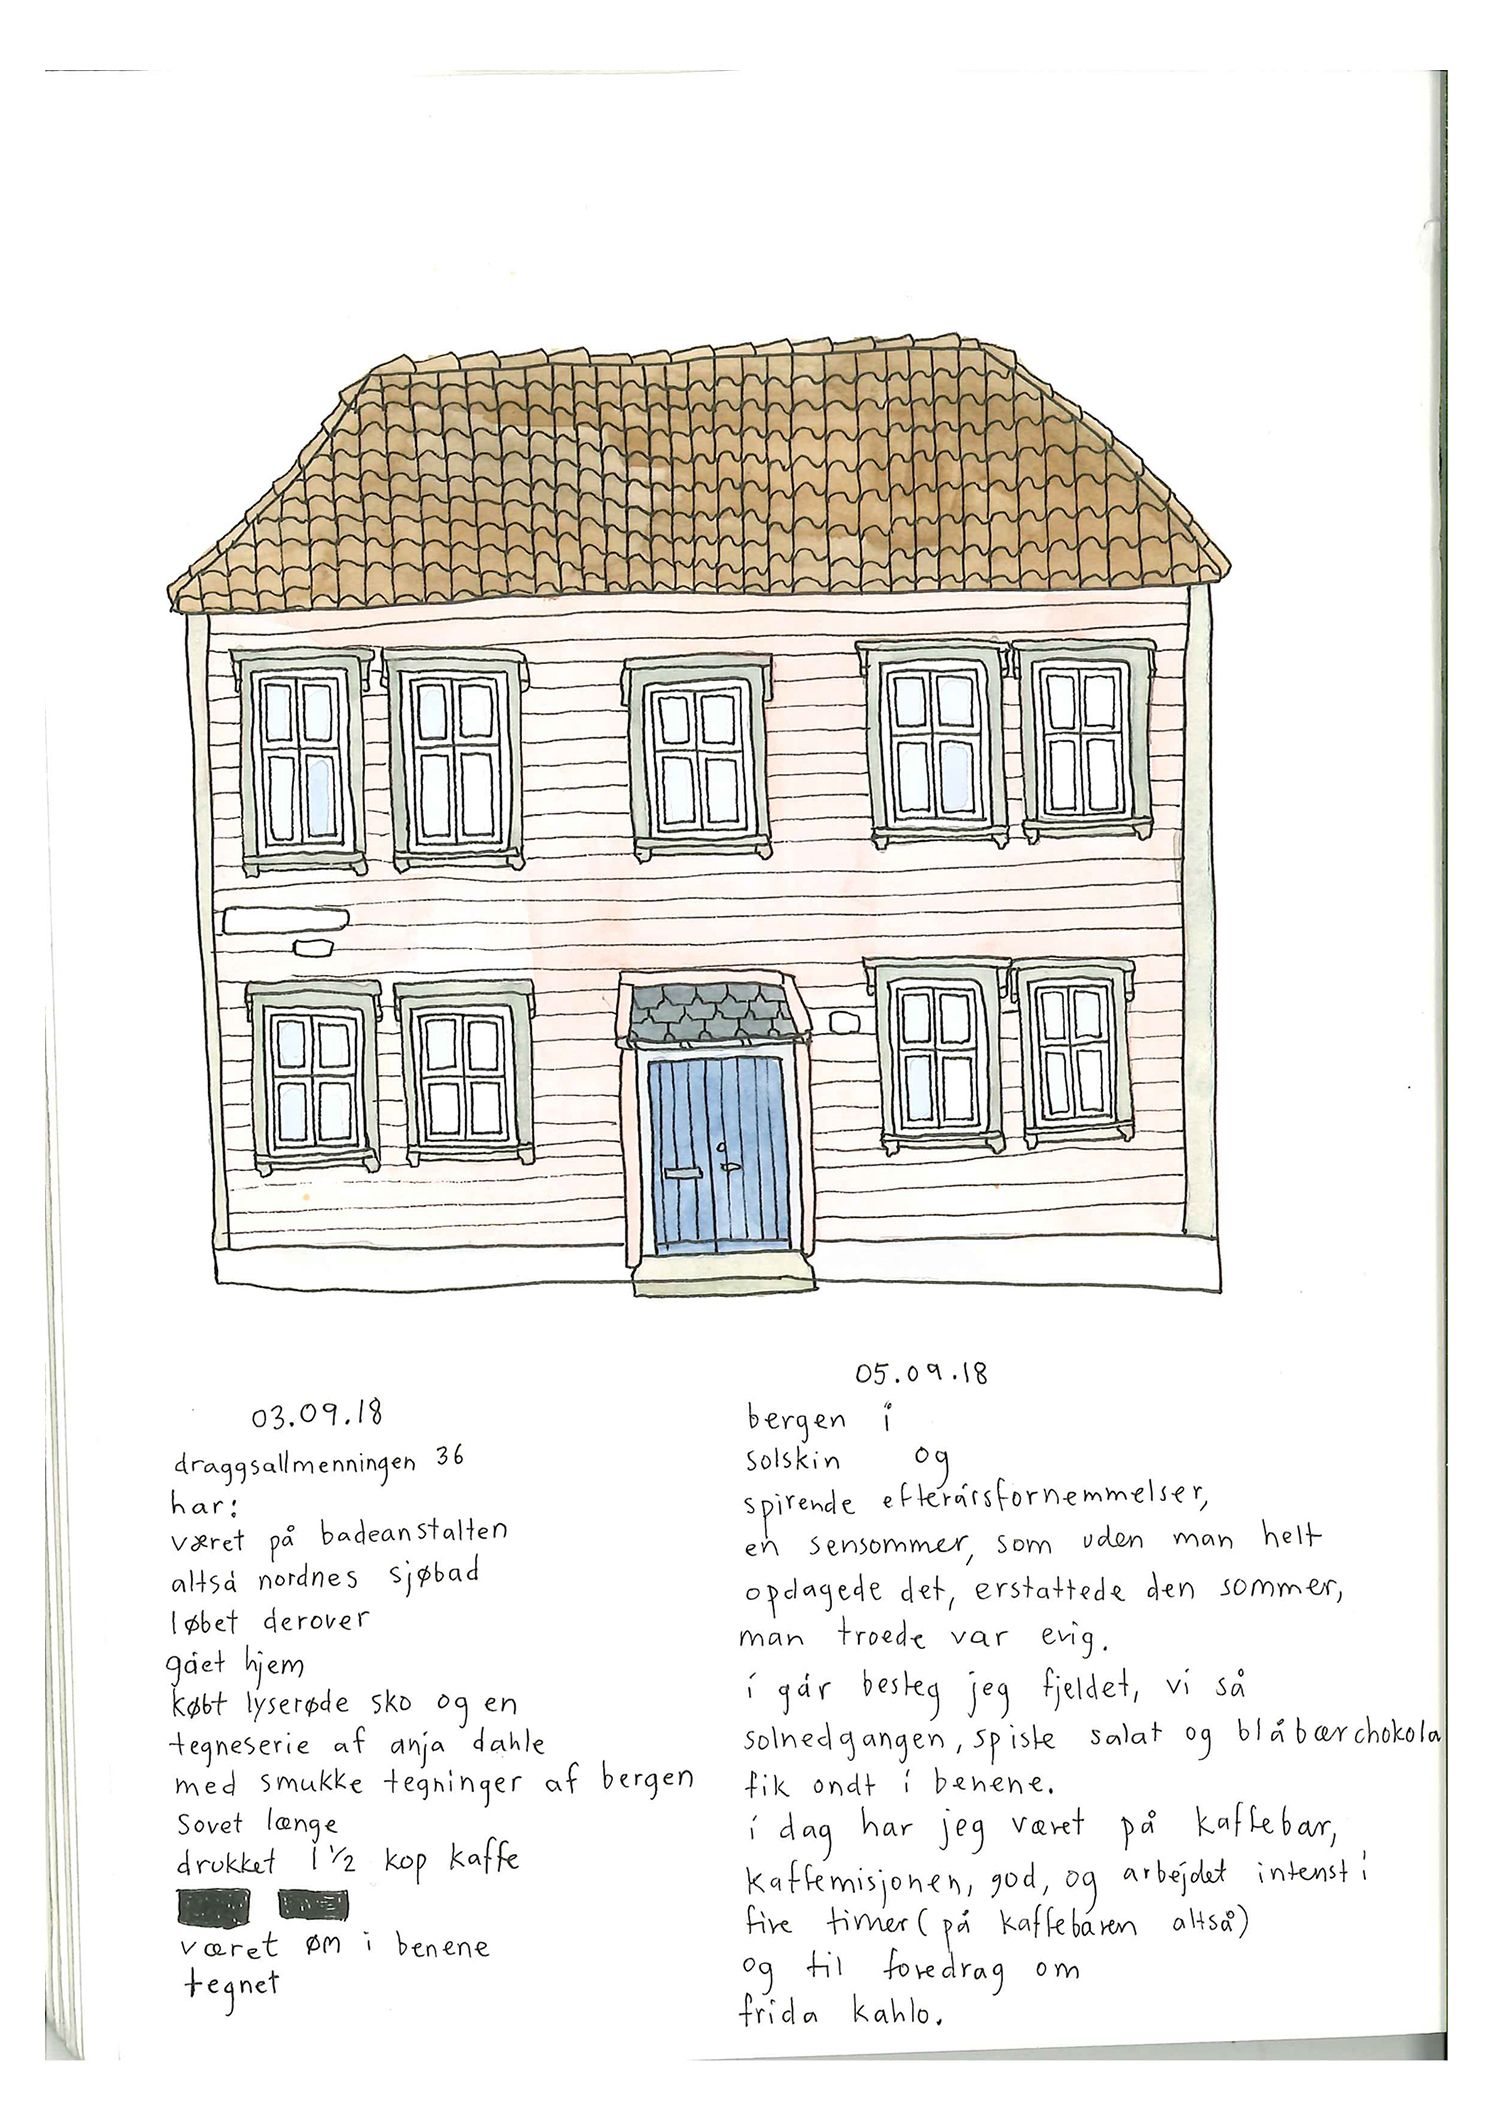 03.09.18
draggsallmenningen 36
har:
været på badeanstalten
altså nordnes sjøbad
løbet derover
gået hjem
købt lyserøde sko og en
tegneserie af anja dahle
med smukke tegninger af bergen
sovet længe
drukket 1 1/2 kop kaffe
været øm i benene
tegnet
05.09.18
bergen i
solskin og
spirende efterårsfornemmelser,
en sensommer, som uden man helt
opdagede det, erstattede den sommer,
man troede var evig.
i går besteg jeg fjeldet, vi så
solnedgangen, spiste salat og blåbærchokola
fik ondt i benene.
i dag har jeg været på kaffebar,
kaffemisjonen, god, og arbejdet intenst i
fire timer (på kaffebaren altså)
og til foredrag om
frida kahlo.